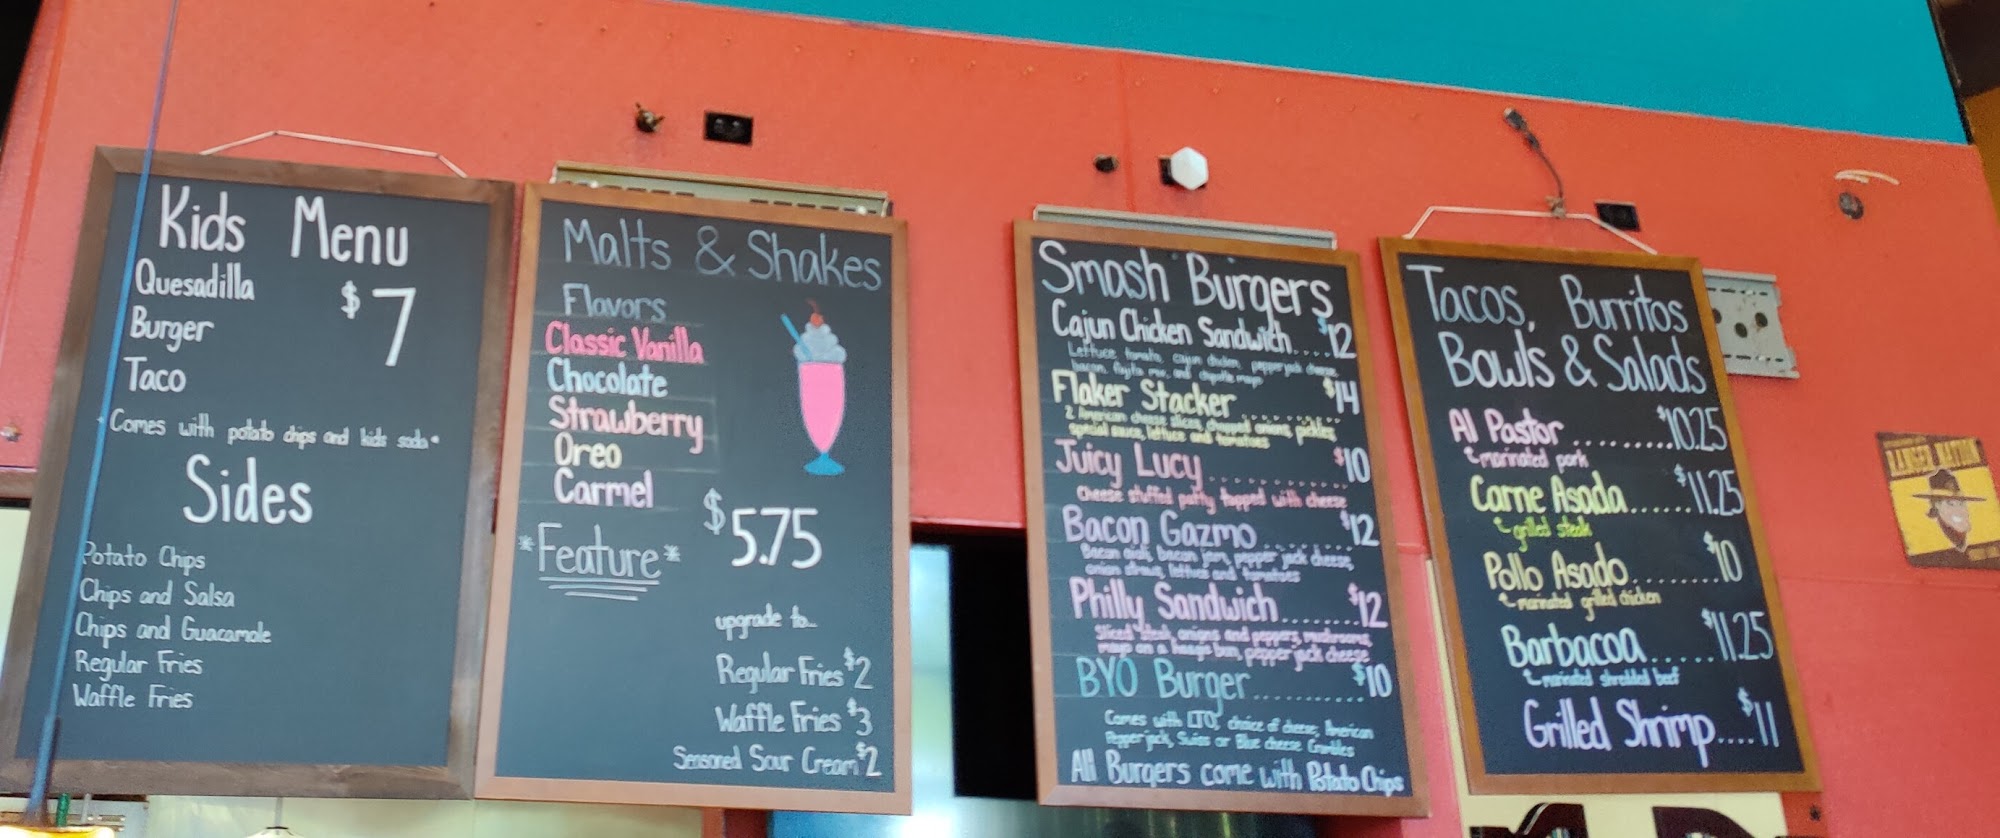 Kids Menu
Quesadilla
Burger
Taco
$7
*Comes with potato chips and kids soda*
Sides
Potato Chips
Chips and Salsa
Chips and Guacamole
Regular Fries
Waffle Fries
Malts & Shakes
Flavors
Classic Vanilla
Chocolate
Strawberry
Oreo
Carmel
$5.75
*Feature*
upgrade to...
Regular Fries $2
Waffle Fries $3
Seasoned Sour Cream $2
Smash Burgers
Cajun Chicken Sandwich....$12
Lettuce tomato, cajun chicken, pepperjack cheese,
bacon, fajita mix, and chipotle mayo
Flaker Stacker..........$14
2 American cheese slices, chopped onions, pickles
special sauce, lettuce and tomatoes
Juicy Lucy............$10
Cheese stuffed patty topped with cheese
Bacon Gazmo........$12
Bacon aioli, bacon jam, pepper jack cheese,
onion straws, lettuce and tomatoes
Philly Sandwich.......$12
Sliced steak, onions and peppers, mushrooms,
mayo on a hoagie bun, pepper jack cheese
BYO Burger..........$10
Comes with LTO, choice of cheese, American
Pepperjack, Swiss or Blue cheese Crumbles
All Burgers come with Potato Chips
Tacos, Burritos
Bowls & Salads
Al Pastor........$10.25
marinated pork
Carne Asada......$11.25
grilled steak
Pollo Asado.......$10
marinated grilled chicken
Barbacoa......$11.25
marinated shredded beef
Grilled Shrimp....$11
RANGER NATION